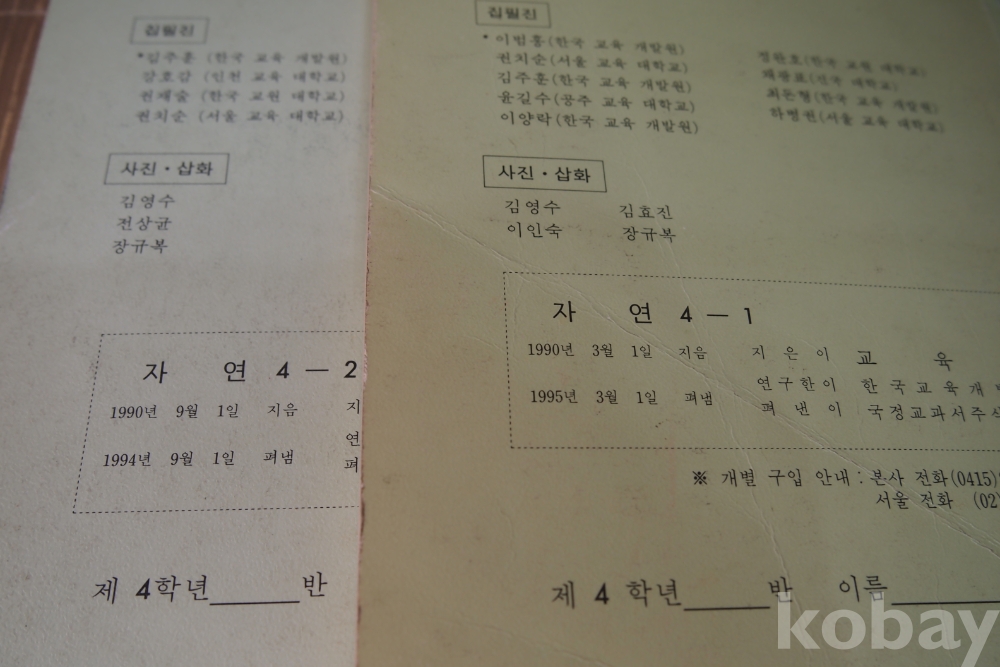 집필진
*김주훈 (한국 교육 개발원)
강호감 (인천 교육 대학교)
권재술 (한국 교원 대학교)
권치순 (서울 교육 대학교)
사진·삽화
김영수
전상균
장규복
자 연 4-2
1990년 9월 1일 지음 지
연
1994년 9월 1일 펴냄 펴
제 4학년 반
집필진
*이범홍(한국 교육 개발원) 정완호(한국 교원 대학교)
권치순(서울 교육 대학교) 채광표(전국 대학교)
김주훈(한국 교육 개발원) 최돈형(한국 교육 개발원)
윤길수(공주 교육 대학교) 하병권(서울 교육 대학교)
이양락(한국 교육 개발원)
사진·삽화
김영수 김효진
이인숙 장규복
자 연 4-1
1990년 3월 1일 지음 지은이 교 육
연구한이 한국교육개
1995년 3월 1일 펴냄 펴낸이 국정교과서주식
※ 개별 구입 안내 : 본사 전화(0415)
서울 전화 (02
제 4 학년 반 이름
kobay